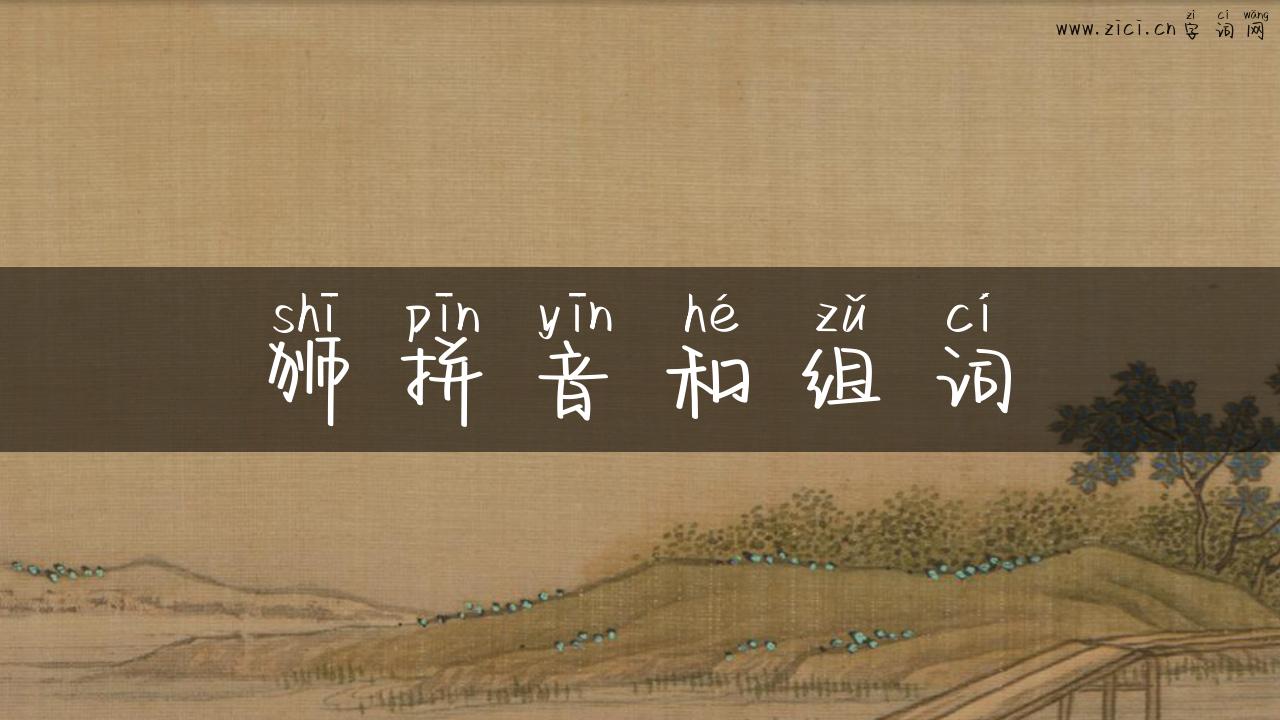 zì cí wǎng
www.zici.cn字词网
shī pīn yīn hé zǔ cí
狮拼音和组词